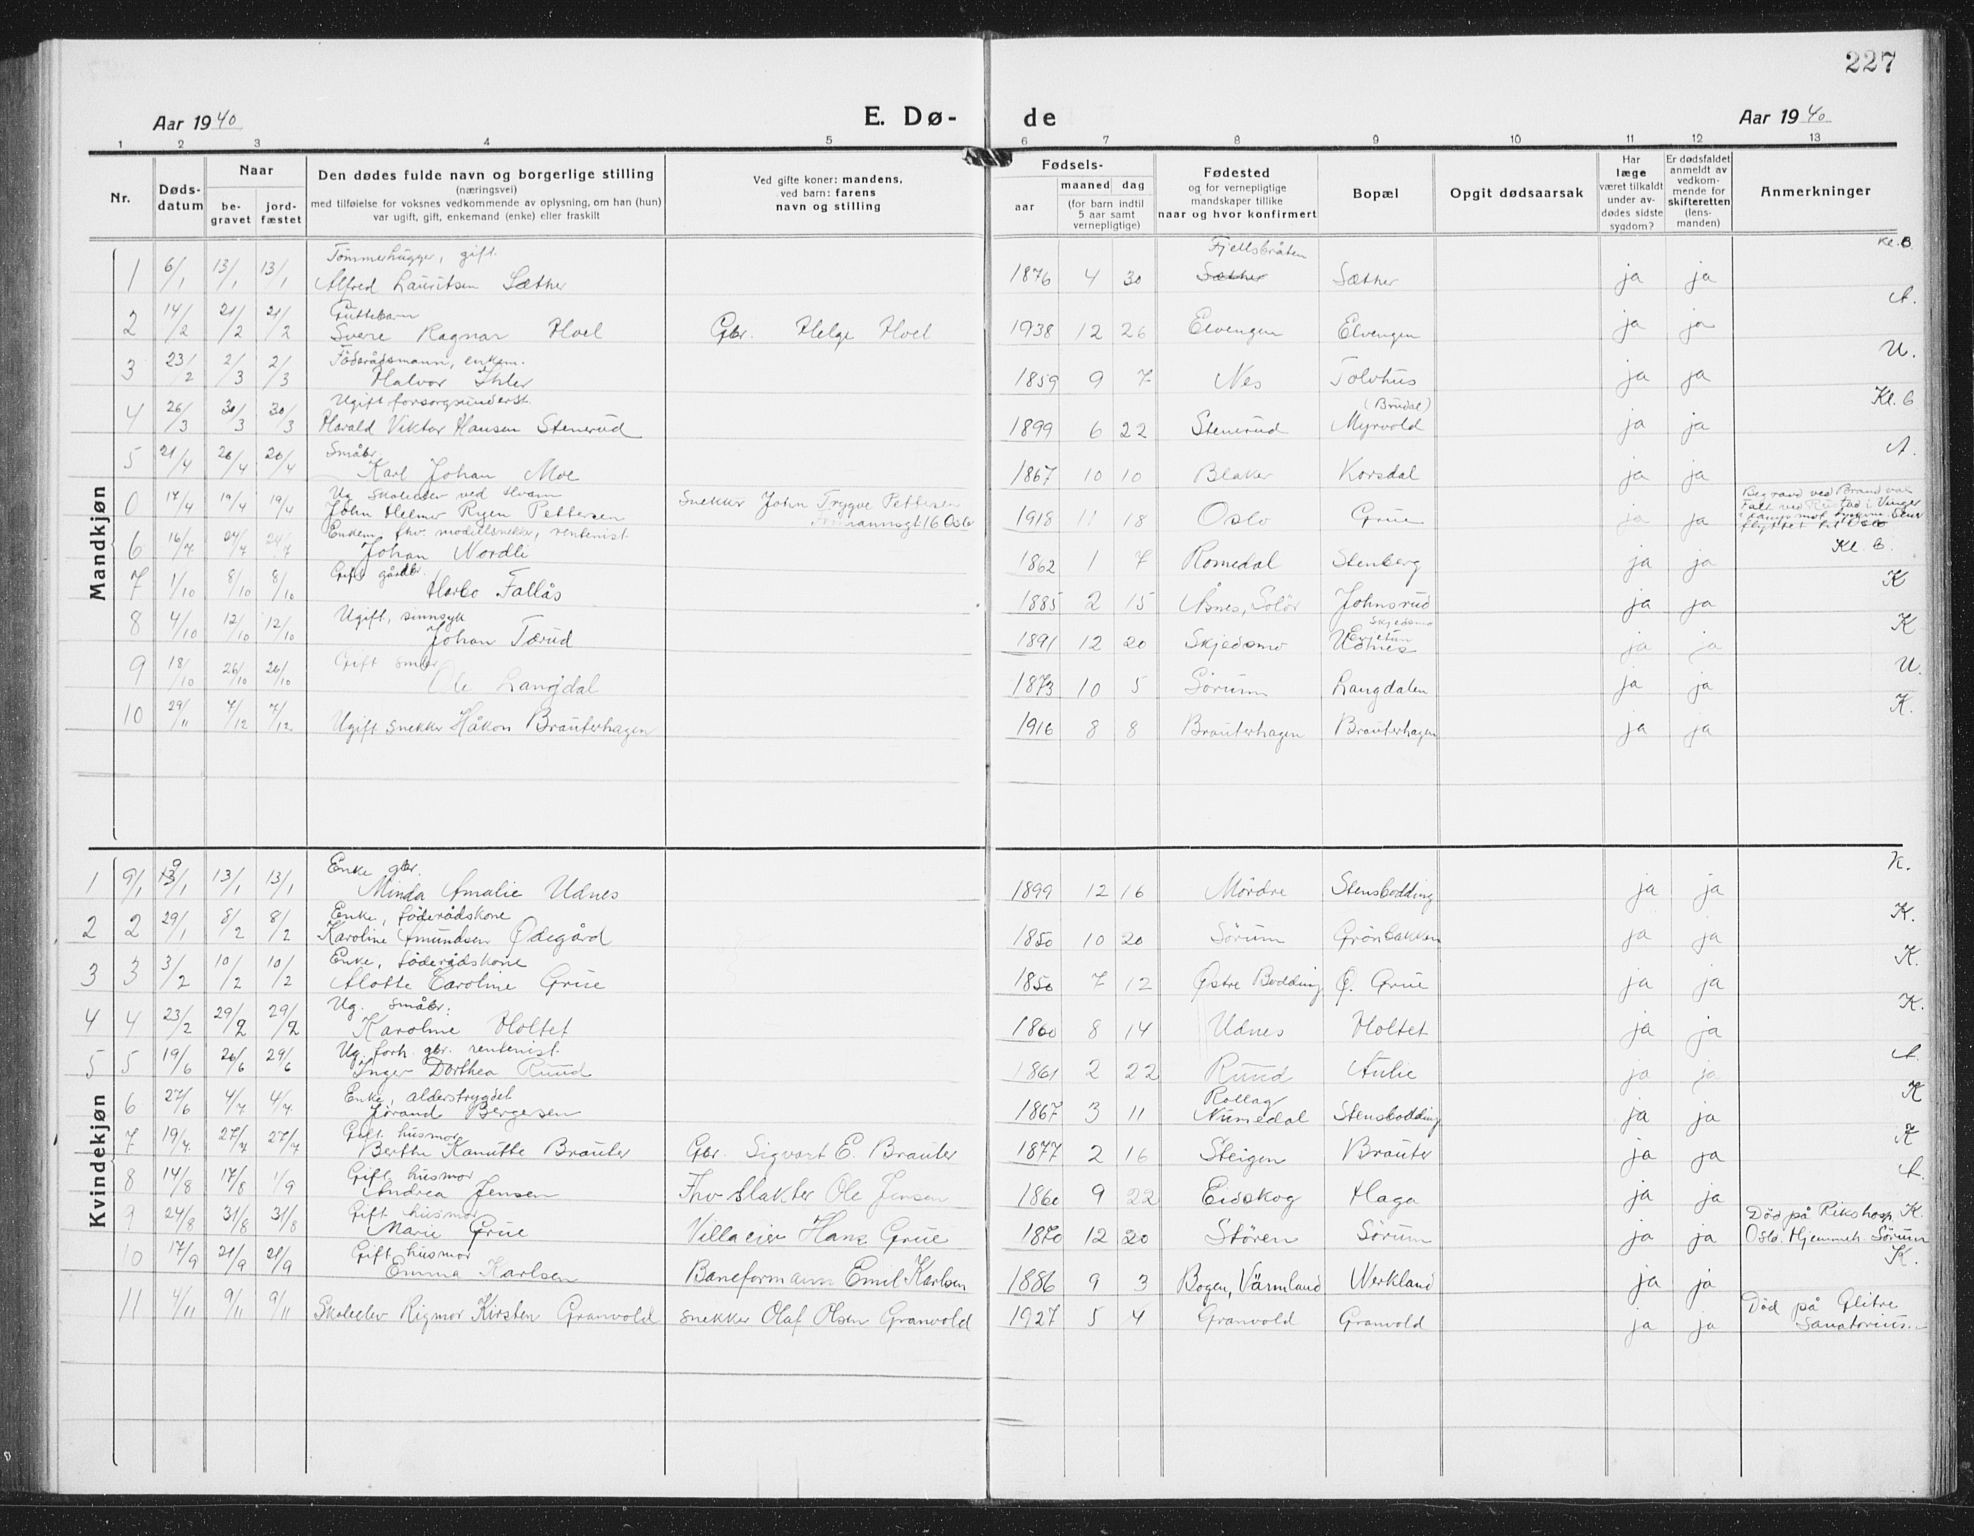 227
Aar 1940 E. Dø- de Aar 1940
1 2 3 4 5 6 7 8 9 10 11 12 13
Nr. Døds-datum Naar be-gravet jord-fæstet Den dødes fulde navn og borgerlige stilling (næringsvei) med tilføielse for voksnes vedkommende av oplysning, om han (hun) var ugift, gift, enkemand (enke) eller fraskilt Ved gifte koner: mandens, ved barn: farens navn og stilling Fødsels- aar maaned dag (for barn indtil 5 aar samt vernepligtige) Fødested og for vernepligtige mandskaper tillike naar og hvor konfirmert Bopæl Opgit dødsaarsak Har læge været tilkaldt under av-dødes sidste sygdom? Er dødsfaldet anmeldt av vedkom-mende for skifteretten (lens-manden) Anmerkninger
Mandkjøn
Tømmerhugger, gift. Fjellsbråten Kl. B
1 6/1 13/1 13/1 Alfred Lauritsen Sæther 1876 4 30 Sæther Sæther ja ja
Guttebarn A.
2 14/2 21/2 21/2 Svere Ragnar Hoel Gbr. Helge Hoel 1938 12 26 Elvengen Elvengen ja ja
Föderådsmann, enkem. U.
3 23/2 2/3 2/3 Halvor Ihler 1859 9 7 Nes Tolvhus ja ja
Ugift forsorgsunderst. (Brudal) Kl. B
4 26/3 30/3 30/3 Harald Viktor Hansen Stenerud 1899 6 22 Stenerud Myrvold ja ja
Småbr. A.
5 21/4 26/4 26/4 Karl Johan Moe 1867 10 10 Blaker Korsdal ja ja
Ug. skoleelev ved Hvam Snekker John Trygve Pettersen Begravd ved Brandval
0 17/4 19/4 19/4 John Helmer Ryen Pettersen 16 Oslo 1918 11 18 Oslo Grue ja ja Falt ved Rustad i Vinger i kamp mot tyskerne. Senere flyttet til Oslo
Enkem. fhv. modellsnekker, rentenist Kl. B.
6 16/7 24/7 24/7 Johan Nordli 1862 1 7 Romedal Stenberg ja ja
Gift gårdbr. K
7 1/10 8/10 8/10 Harbo Fallås 1885 2 15 Åsnes, Solör Johnsrud ja ja
Ugift, sinnsyk Skjedsmo K
8 4/10 12/10 12/10 Johan Tærud 1891 12 20 Skjedsmo Udnes ja ja
Gift småbr. U.
9 18/10 26/10 26/10 Ole Langdal 1873 10 5 Sörum Langdalen ja ja
K.
10 29/11 7/12 7/12 Ugift snekker Håkon Brauterhagen 1916 8 8 Brauterhagen Brauterhagen ja ja
Kvindekjøn
Enke gbr. K.
1 9/1 13/1 13/1 Minda Amalie Udnes 1899 12 16 Mördre Stensbodding ja ja
Enke, föderådskone K.
2 2 29/1 8/2 8/2 Karoline Amundsen Ødegård 1850 10 20 Sörum Grönbakken ja ja
Enke, föderådskone K.
3 3 3/2 10/2 10/2 Alotte Caroline Grue 1850 7 12 Østre Bodding Ø. Grue ja ja
Ug. småbr. K.
4 4 23/2 29/2 29/2 Karoline Holtet 1860 8 14 Udnes Holtet ja ja
Ug. forh. gbr. rentenist. A.
5 5 19/6 26/6 29/6 Inger Dorthea Ruud 1861 2 22 Ruud Aulie ja ja
Enke, alderstrygdet Rollag K
6 27/6 4/7 4/7 Jørand Bergesen 1867 3 11 Numedal Stensbodding ja ja
Gift husmor K
7 19/7 27/7 27/7 Berthe Kanutte Brauter Gbr. Sigvart E. Brauter 1877 2 16 Steigen Brauter ja ja
Gift husmor A.
8 14/8 17/8 1/9 Andrea Jensen Fhv slakter Ole Jensen 1860 9 22 Eidskog Haga ja ja
Gift husmor Död på Rikshosp. K.
9 24/8 31/8 31/8 Marie Grue Villaeier Hans Grue 1870 12 20 Stören Sörum ja ja Oslo. Hjemmeh. Sörum
Gift husmor K.
10 17/9 21/9 21/9 Emma Karlsen Baneformann Emil Karlsen 1886 9 3 Bogen, Värmland Werkland ja ja
Död på Glitre
11 4/11 9/11 9/11 Skoleelev Rigmor Kirsten Granvold snekker Olaf Olsen Granvold 1927 5 4 Granvold Granvold ja ja Sanatorium